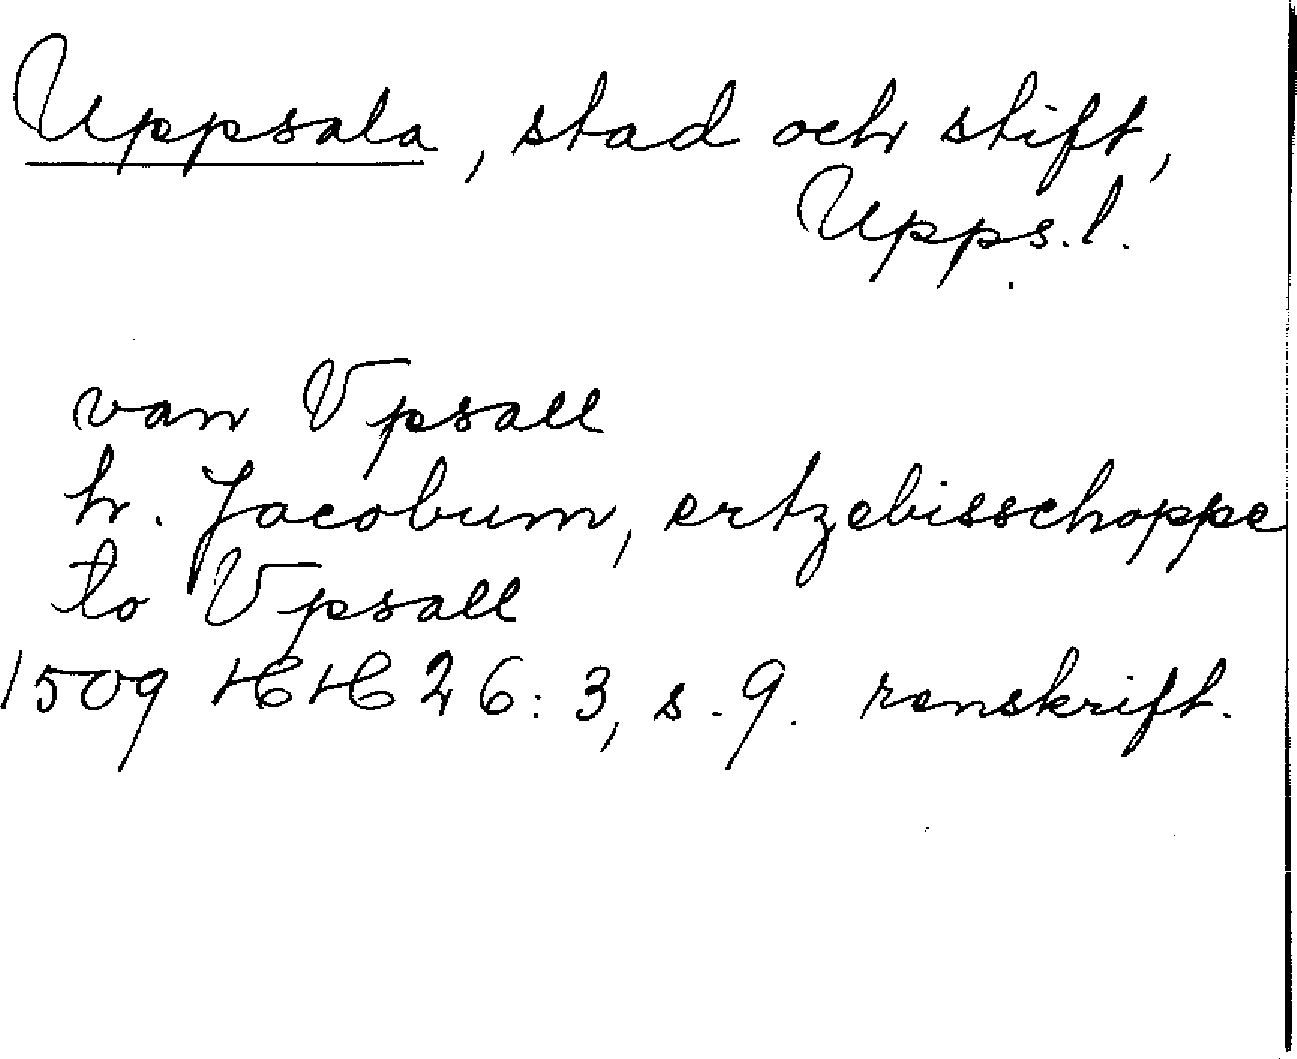 Uppsala, stad och stift,
Upps. l.
van Vpsall
hr. Jacobum, ertzebisschoppe
to Vpsall
1509 HH 26:3, s. 9. renskrift.